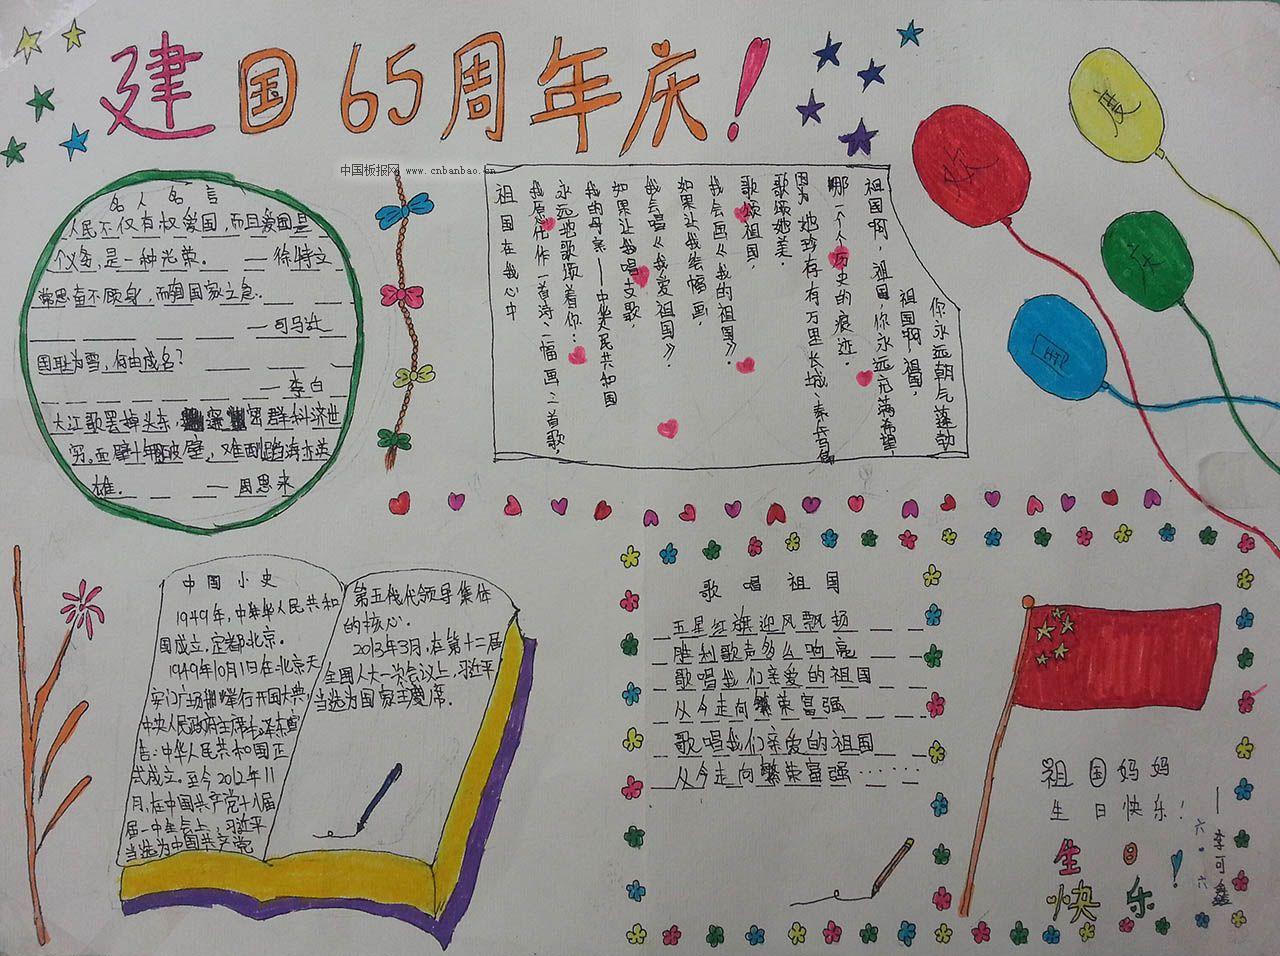 建国65周年庆!
中国板报网 www.cnbanbao.cn
名人名言
人民不仅有权爱国,而且爱国是
个义务,是一种光荣。 —徐特立
常思奋不顾身,而殉国家之急。
—司马迁
国耻为雪,何由成名?
—李白
大江歌罢掉头东,邃密群科济世
穷。面壁十年图破壁,难酬蹈海亦英
雄。 —周恩来
祖国在我心中
我愿化作一首诗、一幅画、一首歌,
永远地歌颂着你:
我的母亲——中华人民共和国
如果让我唱支歌,
我会唱《我爱祖国》。
如果让我绘幅画,
我会画《我的祖国》。
歌颂祖国,
歌颂她美,
因为她珍存有万里长城、秦兵马俑
哪一个个历史的痕迹。
祖国啊,祖国,你永远充满希望,
祖国啊祖国,
你永远朝气蓬勃
欢
度
庆
国
中国小史
1949年,中华人民共和
国成立,定都北京。
1949年10月1日在北京天
安门广场举行开国大典
中央人民政府主席毛泽东宣
告:中华人民共和国正
式成立。至今2012年11
月,在中国共产党十八届
届一中全会上,习近平
当选为中国共产党
第五代代领导集体
的核心。
2013年3月,在第十二届
全国人大一次会议上,习近平
当选为国家主席。
歌唱祖国
五星红旗迎风飘扬
胜利歌声多么响亮
歌唱我们亲爱的祖国
从今走向繁荣富强
歌唱我们亲爱的祖国
从今走向繁荣富强……
祖国妈妈
生日快乐!
生日
快乐!
六.六
—李可鑫